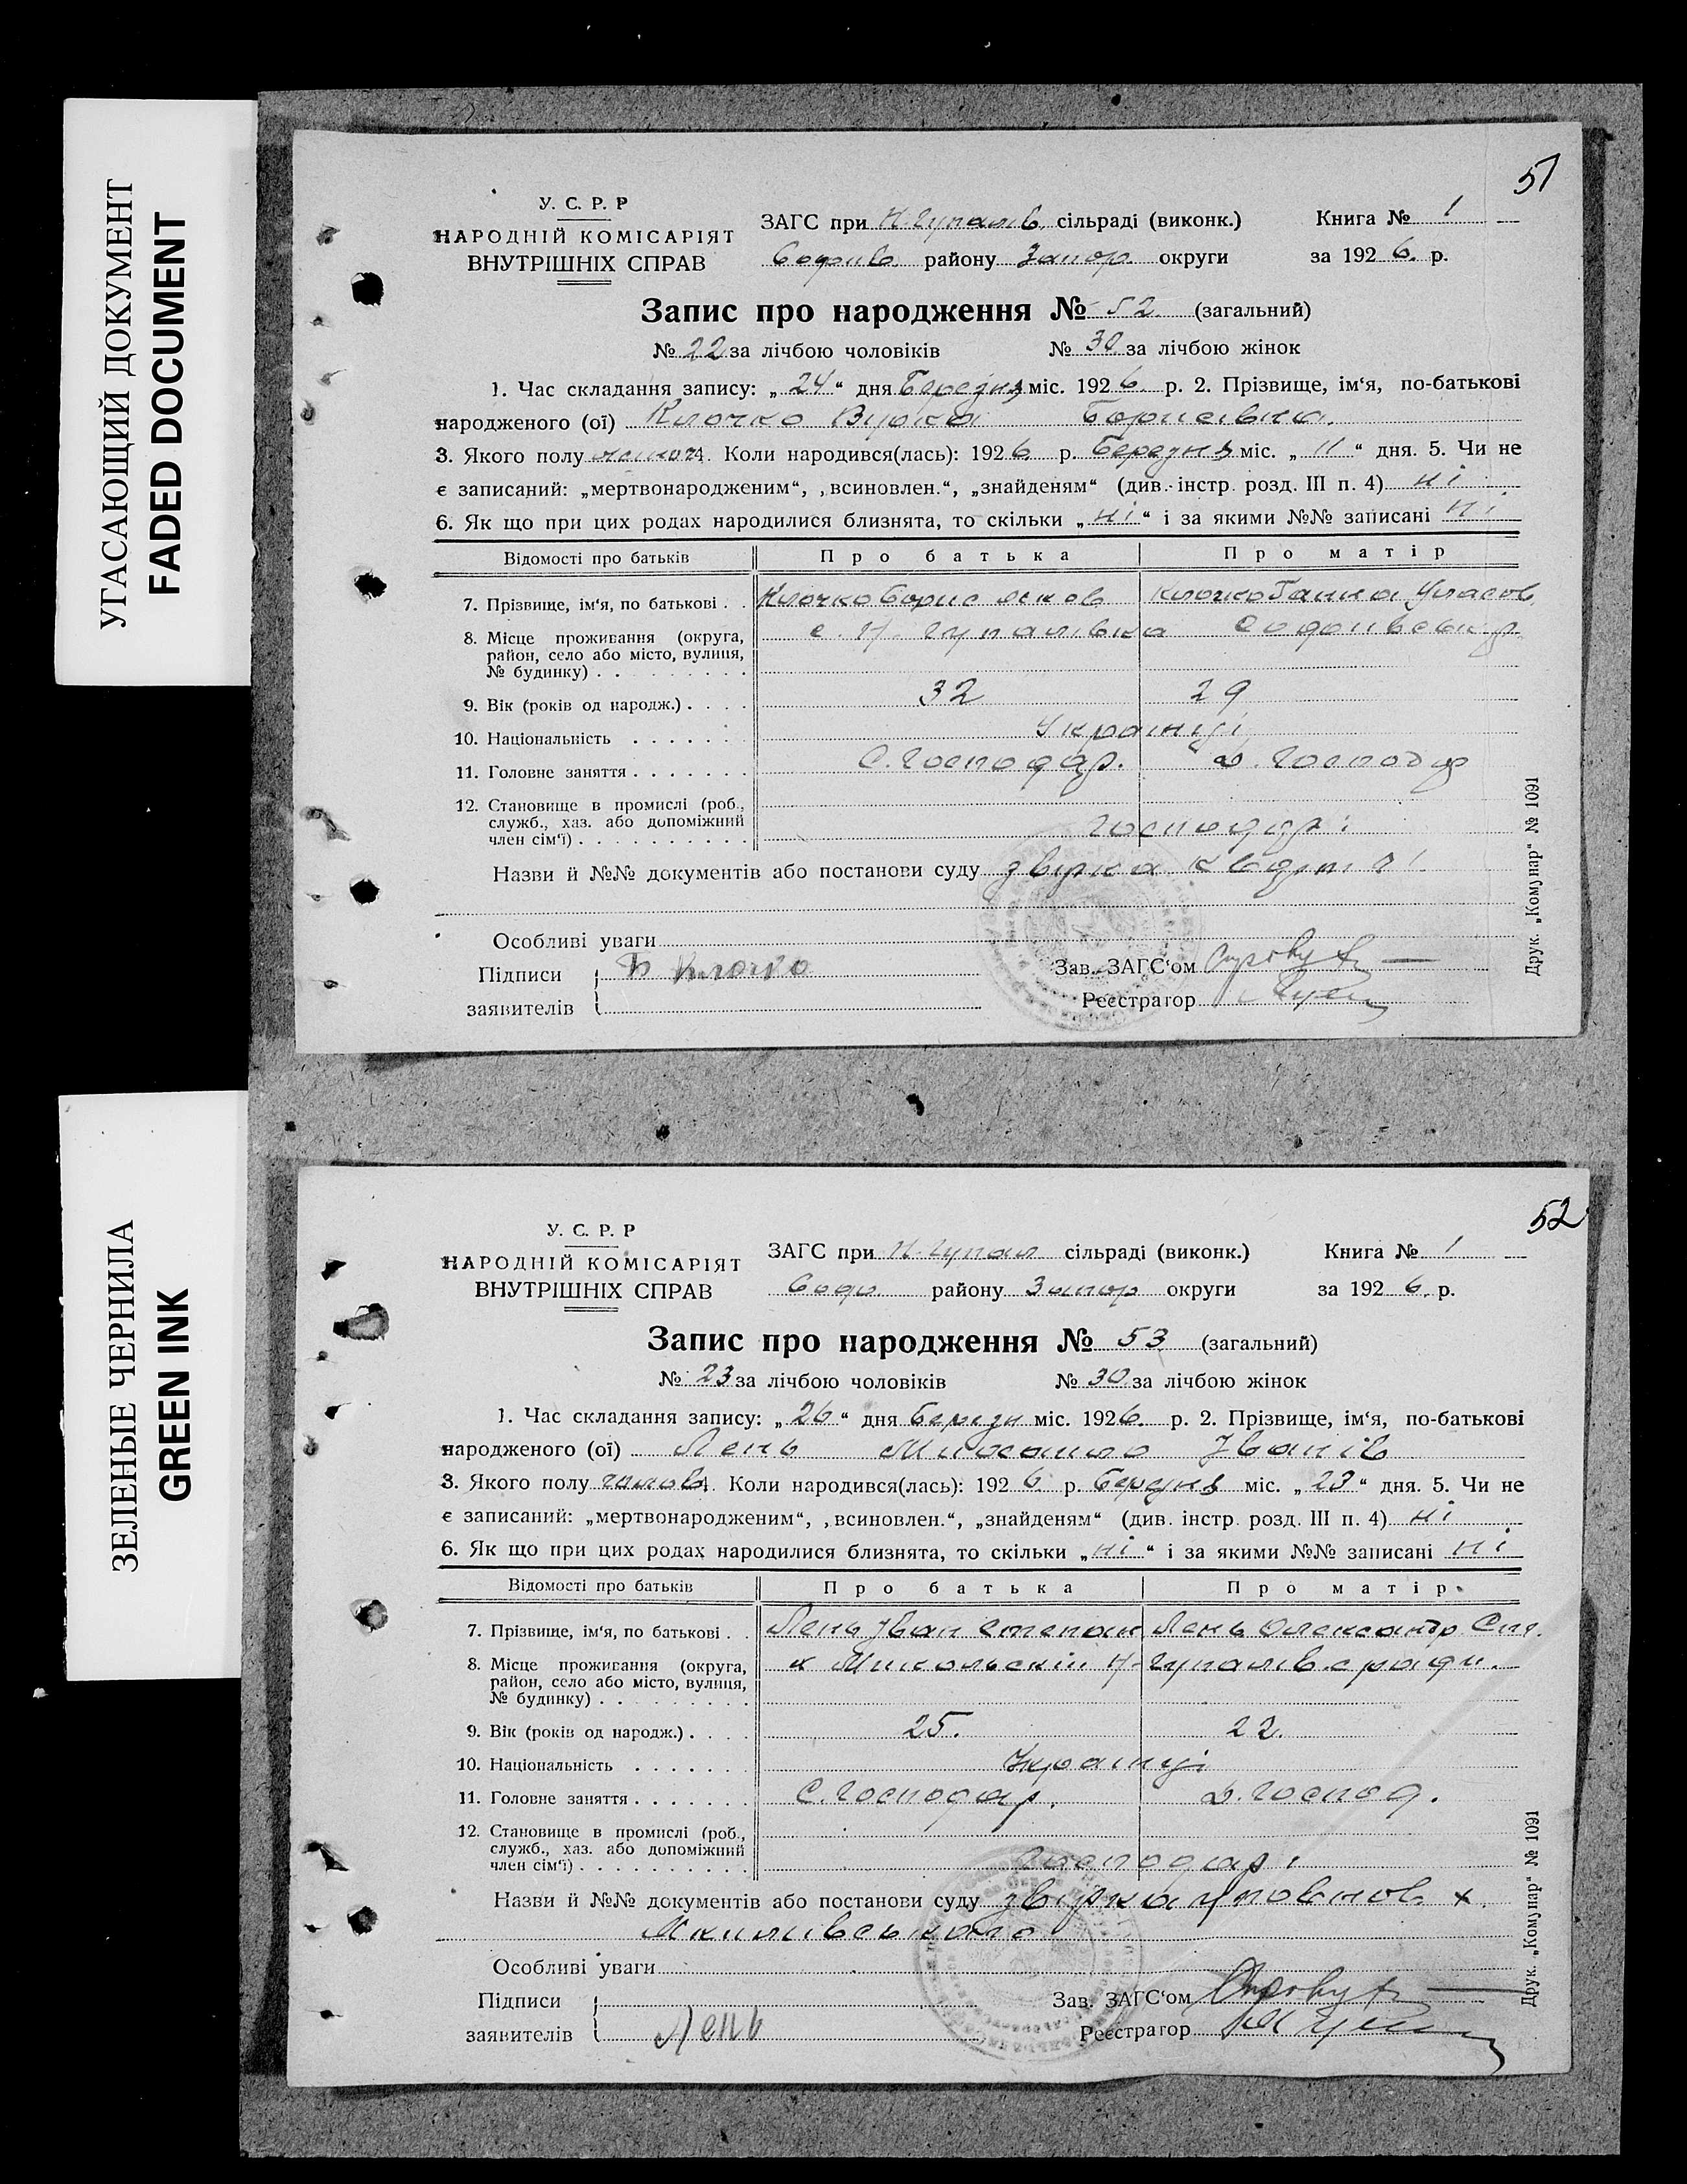 УГАСАЮЩИЙ ДОКУМЕНТ
FADED DOCUMENT
51
У. С. Р. Р
НАРОДНІЙ КОМІСАРІЯТ
ВНУТРІШНІХ СПРАВ
ЗАГС при Н-Гупалів. сільраді (виконк.) Книга № 1
Софіїв. району Запор. округи за 1926. р.
Запис про народження № 52 (загальний)
№ 22 за лічбою чоловіків № 30 за лічбою жінок
1. Час складання запису: „24“ дня Березня міс. 1926 р. 2. Прізвище, ім‘я, по-батькові
народженого (ої) Клочко Борисівна.
3. Якого полу 4. Коли народився(лась): 1926 р. Березня міс. „11“ дня. 5. Чи не
є записаний: „мертвонародженим“, „всиновлен.“, „знайденям“ (див. інстр. розд. III п. 4) ні
6. Як що при цих родах народилися близнята, то скільки „ні“ і за якими №№ записані ні
Відомості про батьків Про батька Про матір
7. Прізвище, ім‘я, по батькові . . Клочко Борис Яков Клочко Ганна Уласов.
8. Місце проживання (округа, с. Н. Гупалівка
район, село або місто, вулиця,
№ будинку) . . . . . . . . .
9. Вік (років од народж.) . . . . 32 29
10. Національність . . . . . . Українці
11. Головне заняття . . . . . . . С. Господар. Д. Господ
12. Становище в промислі (роб.,
служб., хаз. або допоміжний
член сім‘ї) . . . . . . . . . . Господарі
Назви й №№ документів або постанови суду звірка
Особливі уваги
Підписи Б Клочко Зав. ЗАГС‘ом
заявителів Реєстратор
Друк. „Комунар“ № 1091
ЗЕЛЕНЫЕ ЧЕРНИЛА
GREEN INK
52
У. С. Р. Р
НАРОДНІЙ КОМІСАРІЯТ
ВНУТРІШНІХ СПРАВ
ЗАГС при Н-Гупал сільраді (виконк.) Книга № 1
Софі району Запор округи за 1926. р.
Запис про народження № 53 (загальний)
№ 23 за лічбою чоловіків № 30 за лічбою жінок
1. Час складання запису: „26“ дня Березн міс. 1926. р. 2. Прізвище, ім‘я, по-батькові
народженого (ої) Лень Михайло Іванів
3. Якого полу чолов 4. Коли народився(лась): 1926 р. Березня міс. „23“ дня. 5. Чи не
є записаний: „мертвонародженим“, „всиновлен.“, „знайденям“ (див. інстр. розд. III п. 4) ні
6. Як що при цих родах народилися близнята, то скільки „ні“ і за якими №№ записані ні
Відомості про батьків Про батька Про матір
7. Прізвище, ім‘я, по батькові . . Лень Іван Степан. Лень Олександр
8. Місце проживання (округа, х Микольскій Н-Гупалів. с ради.
район, село або місто, вулиця,
№ будинку) . . . . . . . . .
9. Вік (років од народж.) . . . . 25. 22.
10. Національність . . . . . . Українці
11. Головне заняття . . . . . . . С. Господар. Д. Господ.
12. Становище в промислі (роб.,
служб., хаз. або допоміжний
член сім‘ї) . . . . . . . . . . Господарі
Назви й №№ документів або постанови суду звірка уповнов. х.
Особливі уваги
Підписи Зав. ЗАГС‘ом
заявителів Лень Реєстратор
Друк. „Комунар“ № 1091